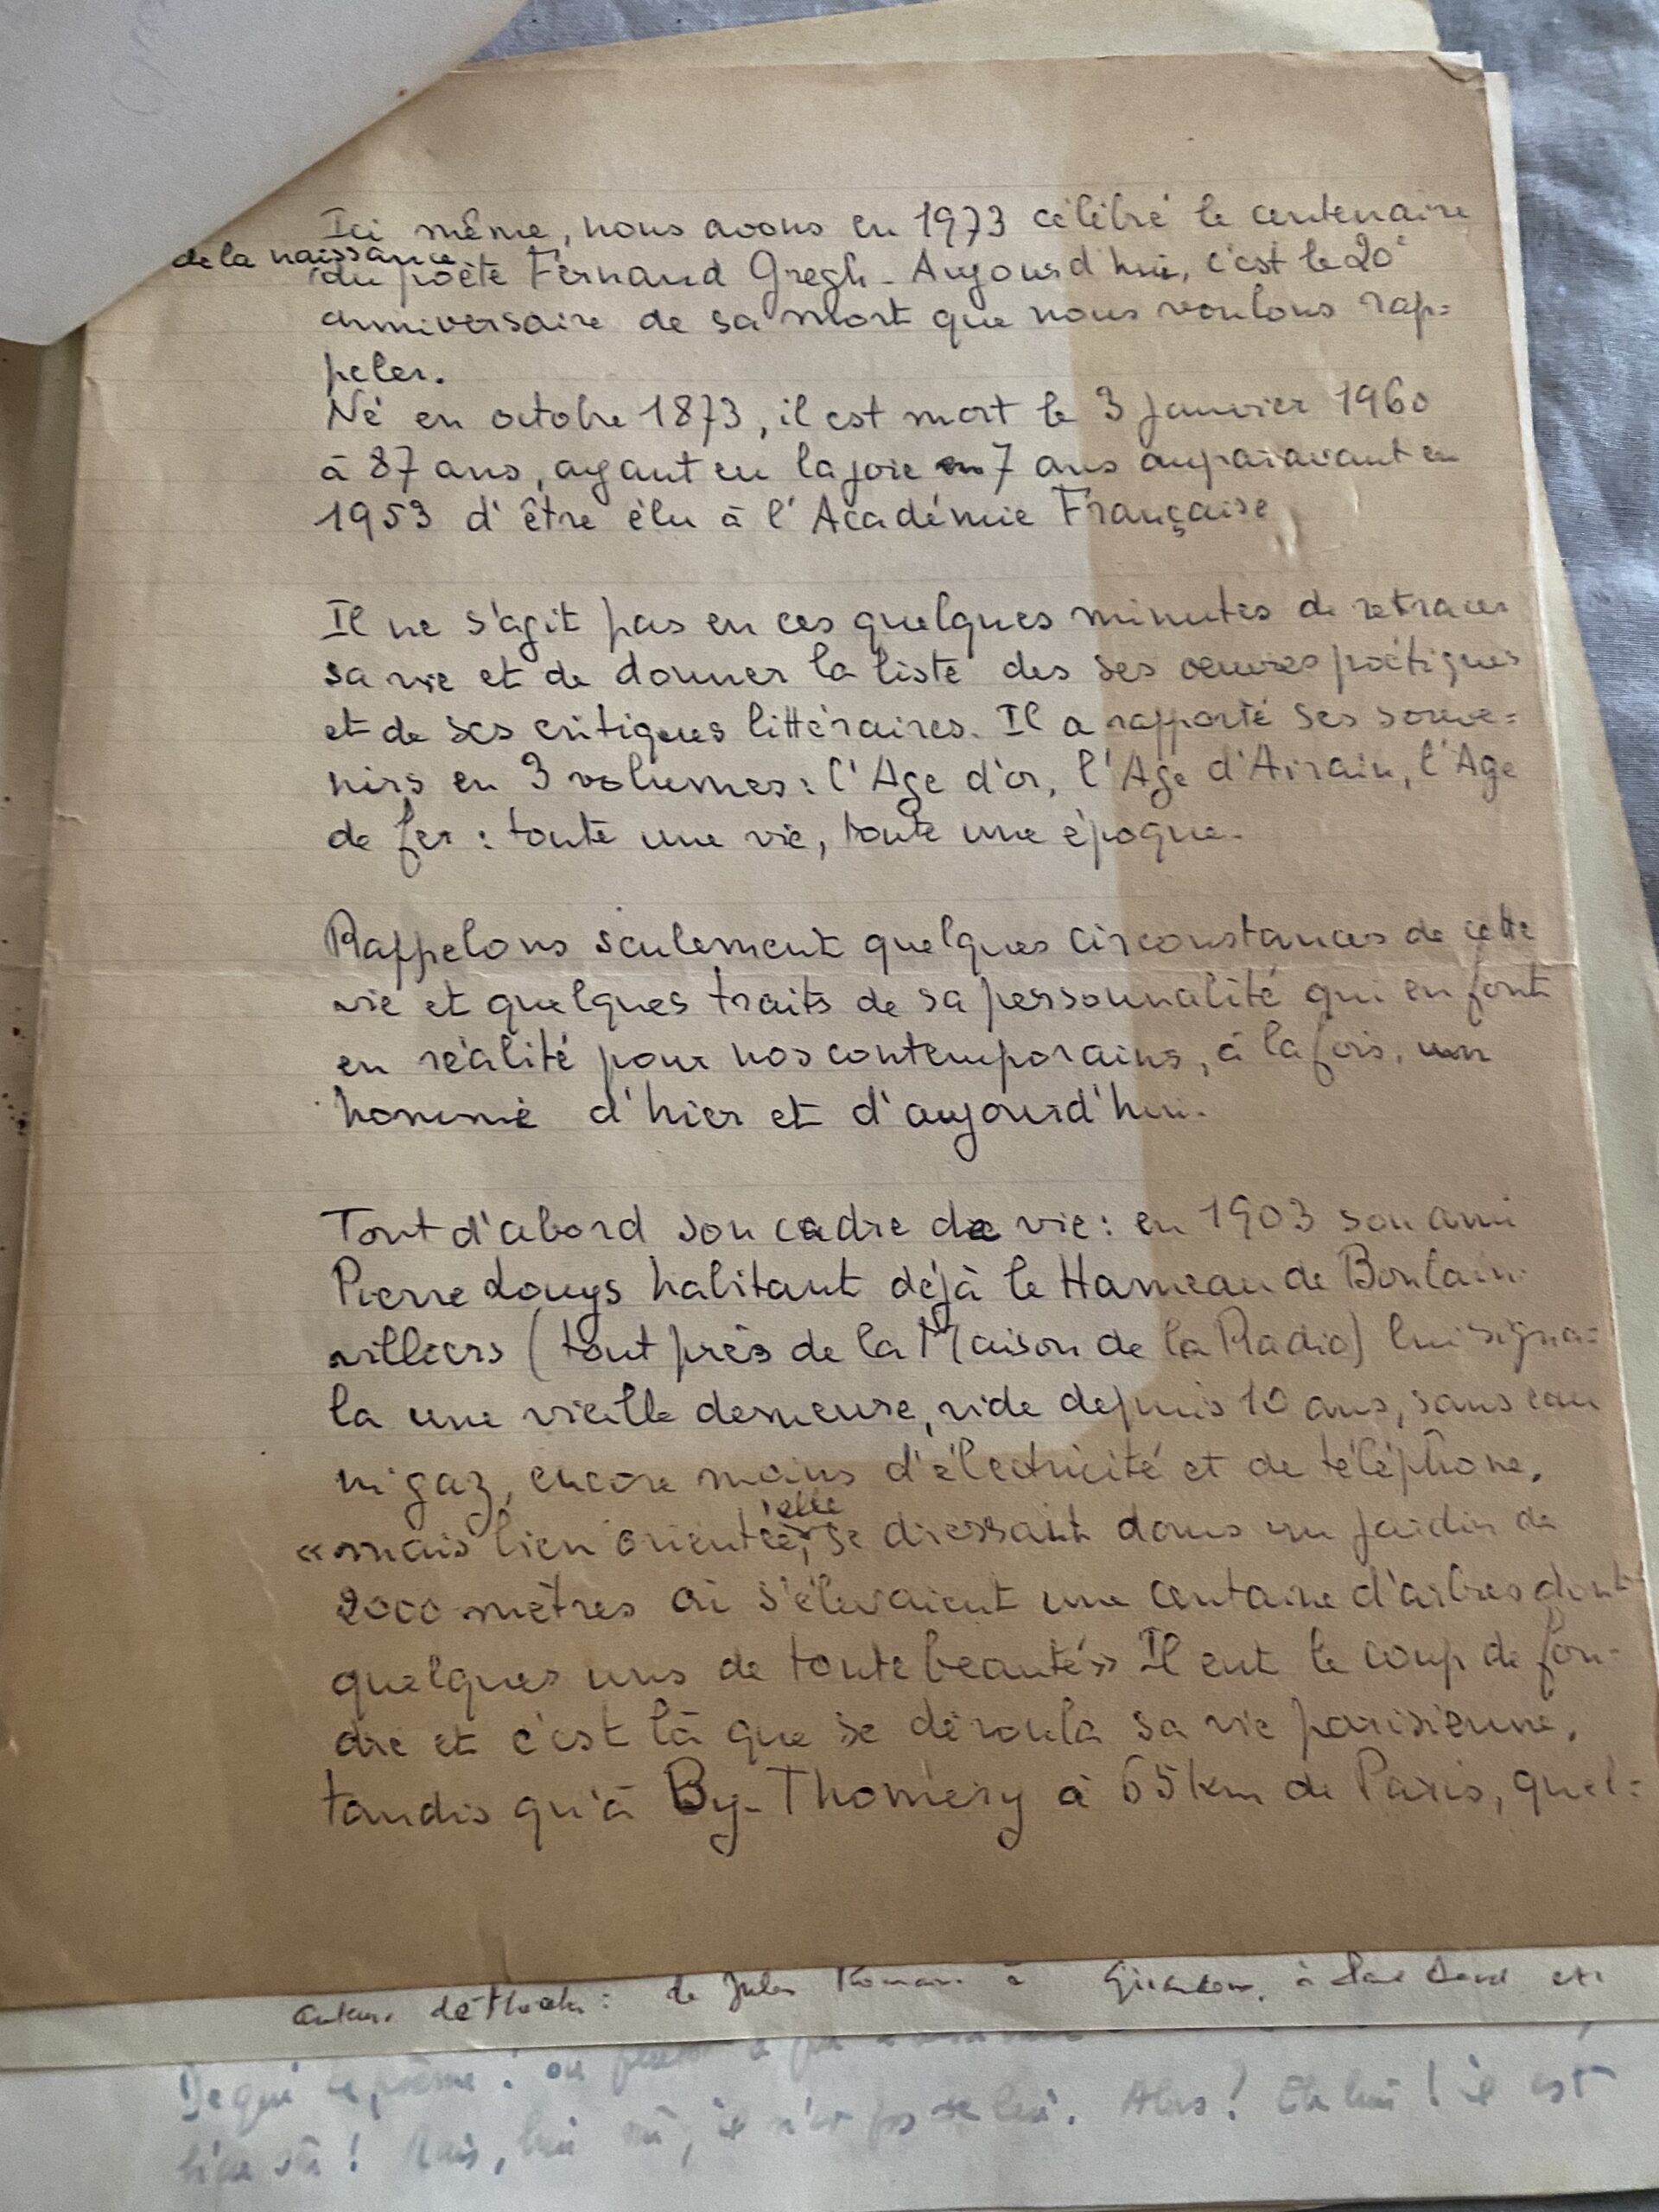 Ici même, nous avons en 1973 célébré le centenaire
de la naissance
du poète Fernand Gregh - Aujourd'hui, c'est le 20e
anniversaire de sa mort que nous voulons rap=
peler.
Né en octobre 1873, il est mort le 3 janvier 1960
à 87 ans, ayant eu la joie 7 ans auparavant en
1953 d'être élu à l'Académie Française
Il ne s'agit pas en ces quelques minutes de retracer
sa vie et de donner la liste des ses oeuvres poétiques
et de ses critiques littéraires. Il a rapporté ses souve=
nirs en 3 volumes : l'Age d'or, l'Age d'Airain, l'Age
de fer : toute une vie, toute une époque.
Rappelons seulement quelques circonstances de cette
vie et quelques traits de sa personnalité qui en font
en réalité pour nos contemporains, à la fois, un
homme d'hier et d'aujourd'hui.
Tout d'abord son cadre de vie : en 1903 son ami
Pierre Louys habitant déjà le Hameau de Boulain-
villiers (tout près de la Maison de la Radio) lui signa=
la une vieille demeure, vide depuis 10 ans, sans eau
ni gaz, encore moins d'électricité et de téléphone,
elle
« mais bien orientée, se dressait dans un jardin de
2000 mètres où s'élevaient une centaine d'arbres dont
quelques uns de toute beauté » Il eut le coup de fou-
dre et c'est là que se déroula sa vie parisienne,
tandis qu'à By-Thomery à 65 km de Paris, quel=
de Jules Romains à Giraudoux, à
De qui le poème : ou
bien sûr ! Mais, lui . Alas ! Eh bien ! il est